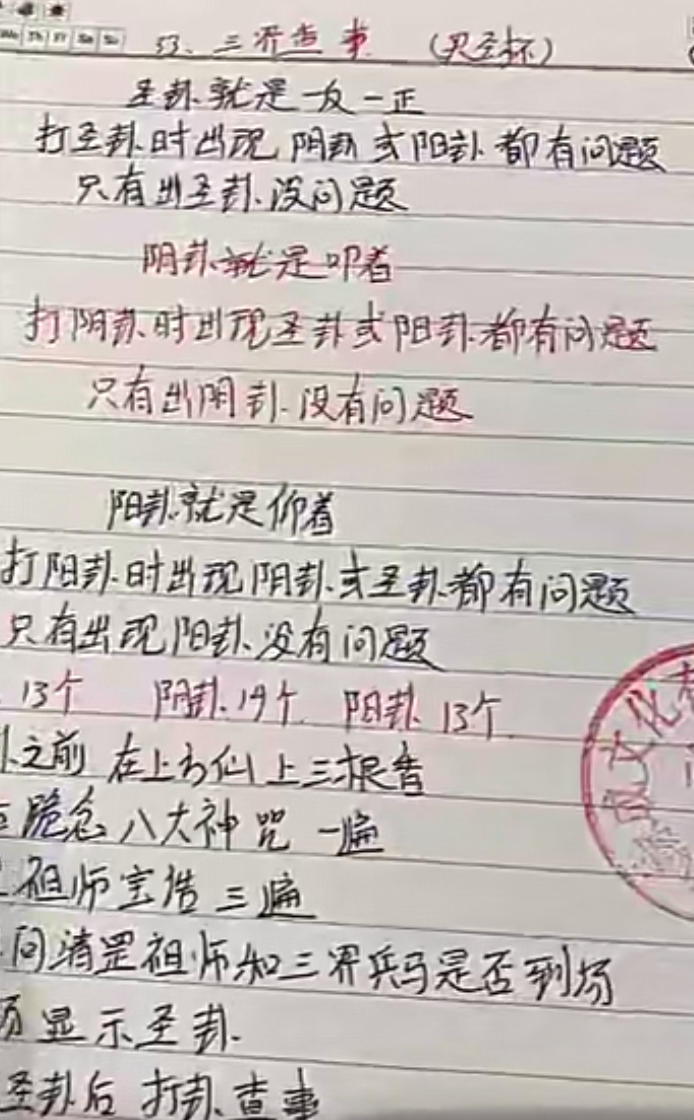 53、三界查事 (只圣杯)
圣卦就是一反一正
打圣卦时出现阴卦或阳卦都有问题
只有出圣卦没问题
阴卦就是叩着
打阴卦时出现圣卦或阳卦都有问题
只有出阴卦没有问题
阳卦就是仰着
打阳卦时出现阴卦或圣卦都有问题
只有出现阳卦没有问题
13个 阴卦14个 阳卦13个
卦之前在上方仙上三根香
跪念八大神咒一遍
祖师宝诰三遍
问清罡祖师和三界兵马是否到场
显示圣卦.
圣卦后打卦查事
文化